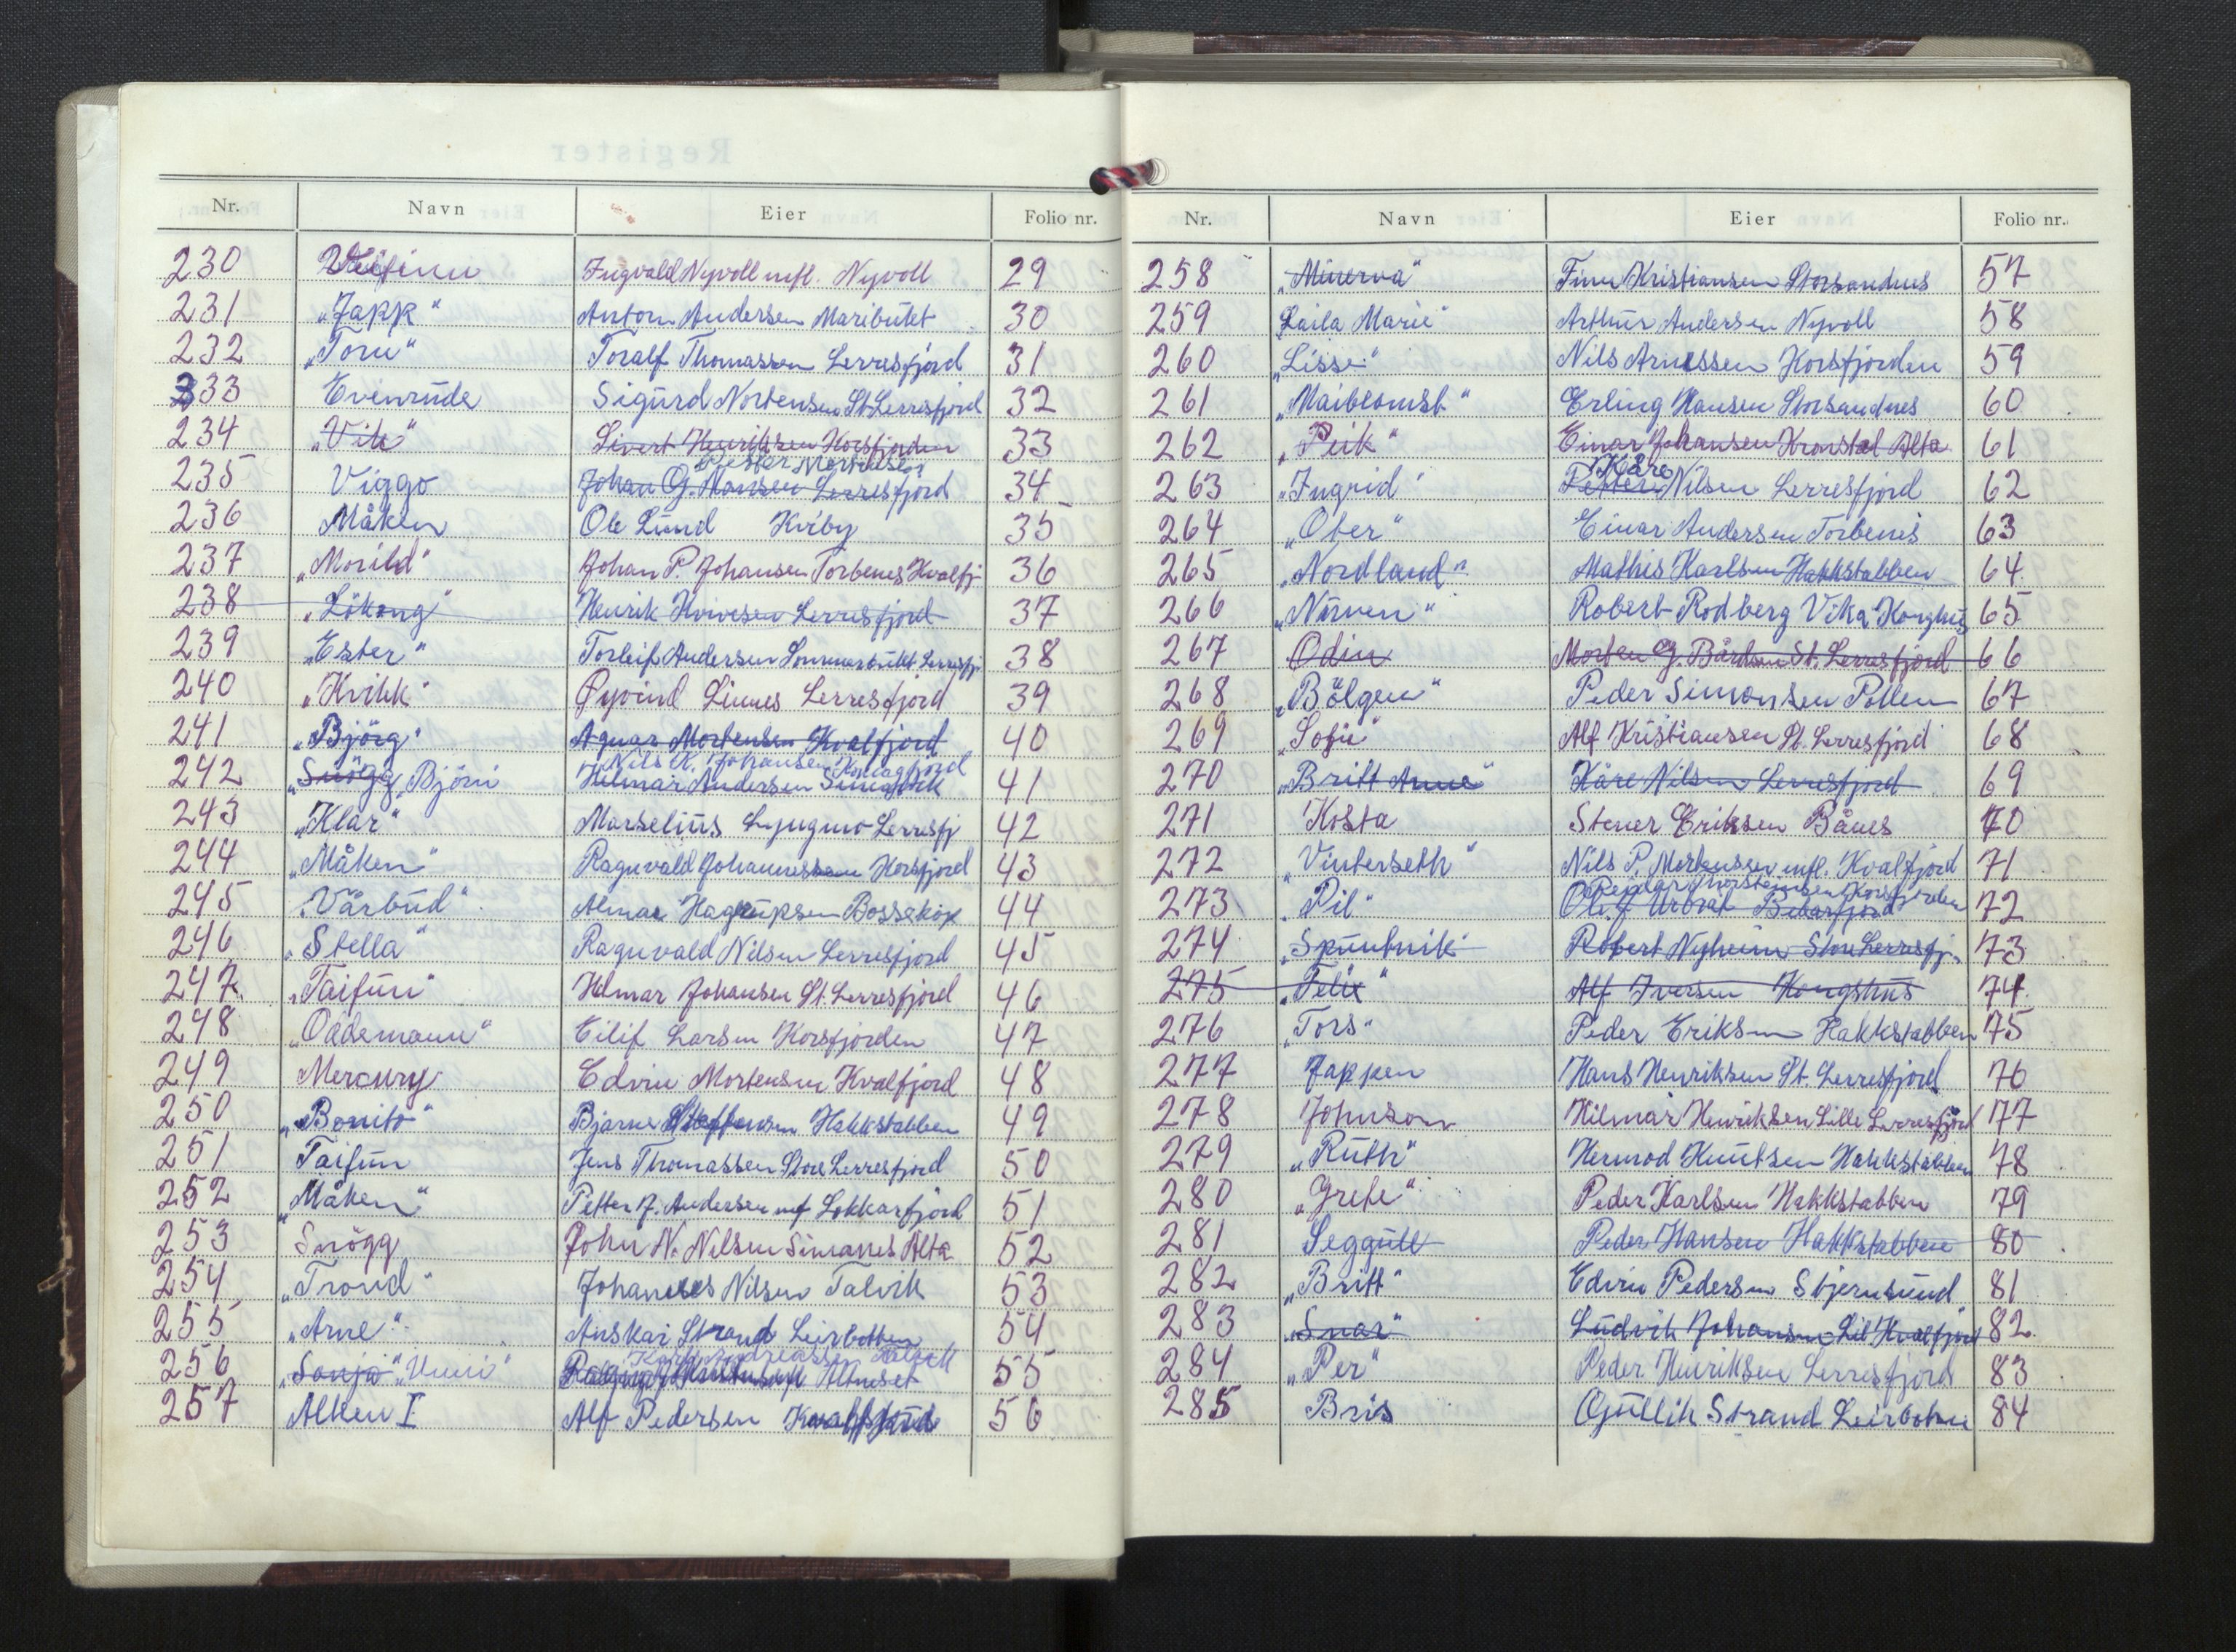 Nr. Navn Eier Folio nr.
230 Ingvald Nyvoll mfl. Nyvoll 29
231 „Japp“ Anton Andersen Maribukt 30
232 „Toni“ Toralf Thomassen Lerresfjord 31
333 Evinrude Sigurd Mortensen St. Lerresfjord 32
234 „Vik“ Sivert Henriksen Korsfjorden 33
Mortensen
235 Viggo Johan G. Hansen Lerresfjord 34
236 Måken Ole Lund Kviby 35
237 „Morild“ Johan P. Johansen Torbenes Kvalfj. 36
238 „Lökong“ Henrik Lerresfjord 37
239 „Ester“ Torleif Andersen Lerresfj. 38
240 „Kvikk“ Øyvind Lerresfjord 39
241 „Björg“ Agnar Mortensen Kvalfjord 40
Nils K. Johansen
242 „Snögg“ Björn Hilmar Andersen 41
243 „Klar“ Marselius Lyngmo Lerresfj 42
244 „Måken“ Ragnvald Johannessen Korsfjord 43
245 „Vårbud“ Almar Hagrupsen Bossekop 44
246 „Stella“ Ragnvald Nilsen Lerresfjord 45
247 „Taifun“ Hilmar Johansen St. Lerresfjord 46
248 „Oldemann“ Eilif Larsen Korsfjorden 47
249 Mercury Edvin Mortensen Kvalfjord 48
250 „Bonito“ Bjarne Steffensen Hakkstabben 49
251 Taifun Jens Thomassen Store Lerresfjord 50
252 „Måken“ Petter J. Andersen mf Lokkarfjord 51
253 Snögg John N. Nilsen Simanes Alta 52
254 „Trond“ Johannes Nilsen Talvik 53
255 „Arne“ Anskar Strand Leirbotten 54
Andreassen Talvik
256 „Sonja“ „Unni“ Altneset 55
257 Alken I Alf Pedersen Kvalfjord 56
Nr. Navn Eier Folio nr.
258 „Minerva“ Finn Kristiansen Storsandnes 57
259 Laila Marie“ Arthur Andersen Nyvoll 58
260 „Lisse“ Nils Arnessen Korsfjorden 59
261 „Maiblomst“ Erling Hansen Storsandnes 60
262 „Peik“ Einar Johansen Kronstad Alta 61
Kåre
263 „Ingrid“ Petter Nilsen Lerresfjord 62
264 „Oter“ Einar Andersen Torbenes 63
265 „Nordland“ Mathis Karlsen Hakkstabben 64
266 Robert Rodberg Vika Kongshus 65
267 Odin Morten G. Bårdsen St. Lerresfjord 66
268 „Bölgen“ Peder Simonsen Pollen 67
269 „Sofie“ Alf Kristiansen St. Lerresfjord 68
270 „Britt Anne“ Kåre Nilsen Lerresfjord 69
271 Kosta Stener Eriksen Bånes 70
272 „Vinterseth“ Nils P. Mortensen mfl. Kvalfjord 71
Reidar Thorsteinsen Korsfjorden
273 „Pil“ 72
274 „Sputnik“ Robert Nyheim Store Lerresfj. 73
275 „Felix“ Alf Iversen Kongshus 74
276 „Tors“ Peder Eriksen Hakkstabben 75
277 Jappen Hans Henriksen St. Lerresfjord 76
278 Johnson Hilmar Henriksen Lille Lerresfjord 77
279 „Ruth“ Hermod Knutsen Hakkstabben 78
280 „Grete“ Peder Karlsen Hakkstabben 79
281 Seggull Peder Hansen Hakkstabben 80
282 „Britt“ Edvin Pedersen Stjernsund 81
283 „Snar“ Ludvik Johansen Lil Kvalfjord 82
284 „Per“ Peder Henriksen Lerresfjord 83
285 Bris Gullik Strand Leirbotn 84